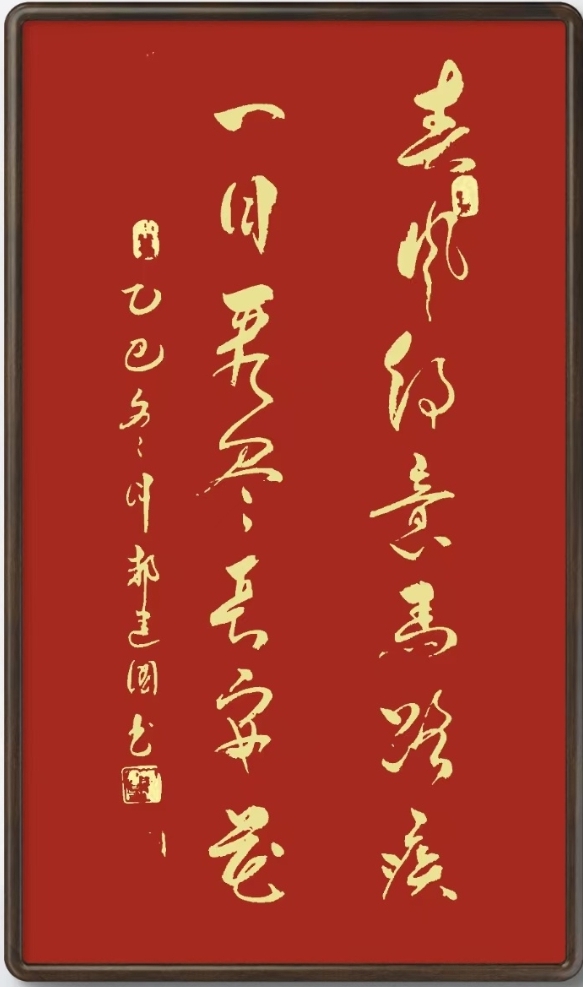 春风得意马蹄疾
一日看尽长安花
乙巳冬月郝建国书